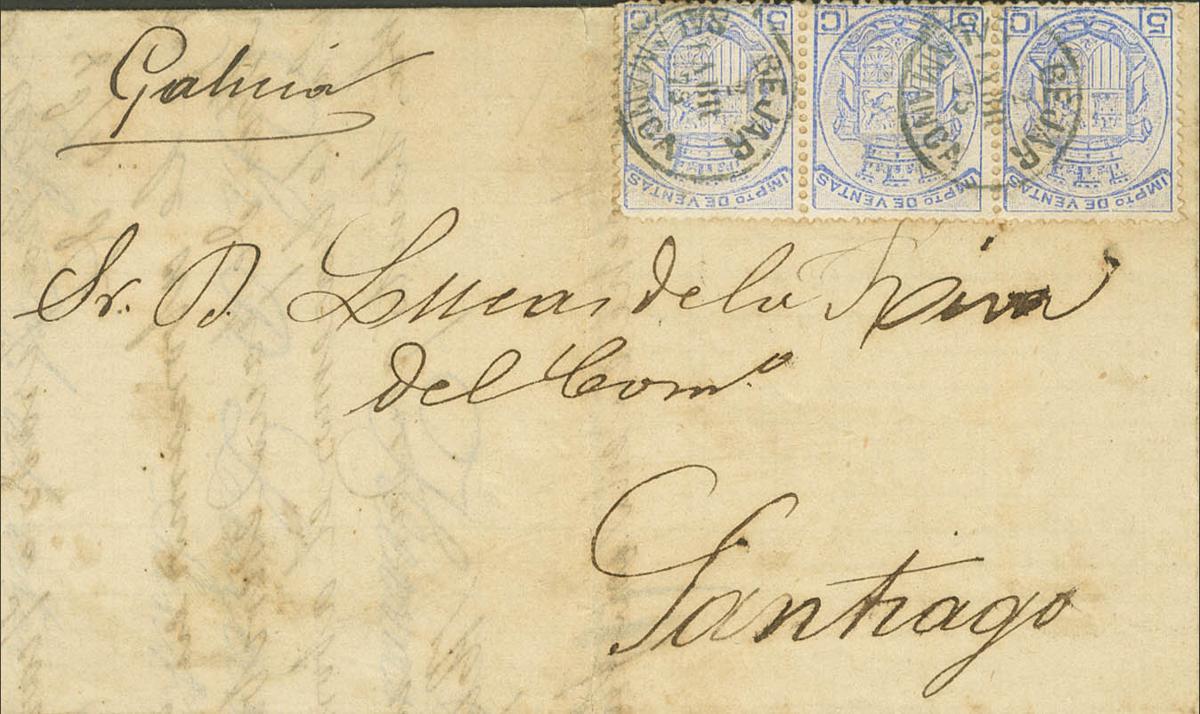 Galicia
5 C 5 C 5 C
IMPTO DE VENTAS IMPTO DE VENTAS IMPTO DE VENTAS
BEJAR SALAMANCA
BEJAR SALAMANCA
Sr. D. Lucas de la Riva
del Como
Santiago